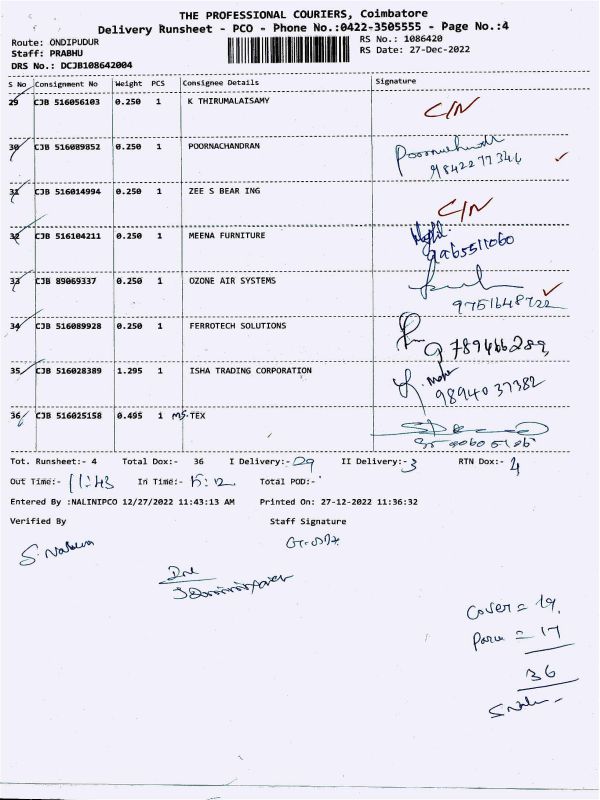 THE PROFESSIONAL COURIERS, Coimbatore
Delivery Runsheet - PCO - Phone No.:0422-3505555 - Page No.:4
Route: ONDIPUDUR
RS No.: 1086420
Staff: PRABHU
RS Date: 27-Dec-2022
DRS No.: DCJB108642004
S No Consignment No Weight PCS Consignee Details Signature
29 CJB 516056103 0.250 1 K THIRUMALAISAMY C/N
30 CJB 516089852 0.250 1 POORNACHANDRAN
9842277344
31 CJB 516014994 0.250 1 ZEE S BEAR ING C/N
32 CJB 516104211 0.250 1 MEENA FURNITURE
33 CJB 89069337 0.250 1 OZONE AIR SYSTEMS
34 CJB 516089928 0.250 1 FERROTECH SOLUTIONS
35 CJB 516028389 1.295 1 ISHA TRADING CORPORATION
9894037382
36 CJB 516025158 0.495 1 M/S. TEX
Tot. Runsheet:- 4 Total Dox:- 36 I Delivery:- 29 II Delivery:- 3 RTN Dox:- 4
Out Time:- 11:43 In Time:- 15:12 Total POD:-
Entered By :NALINIPCO 12/27/2022 11:43:13 AM Printed On: 27-12-2022 11:36:32
Verified By Staff Signature
Cover = 19
= 17
36